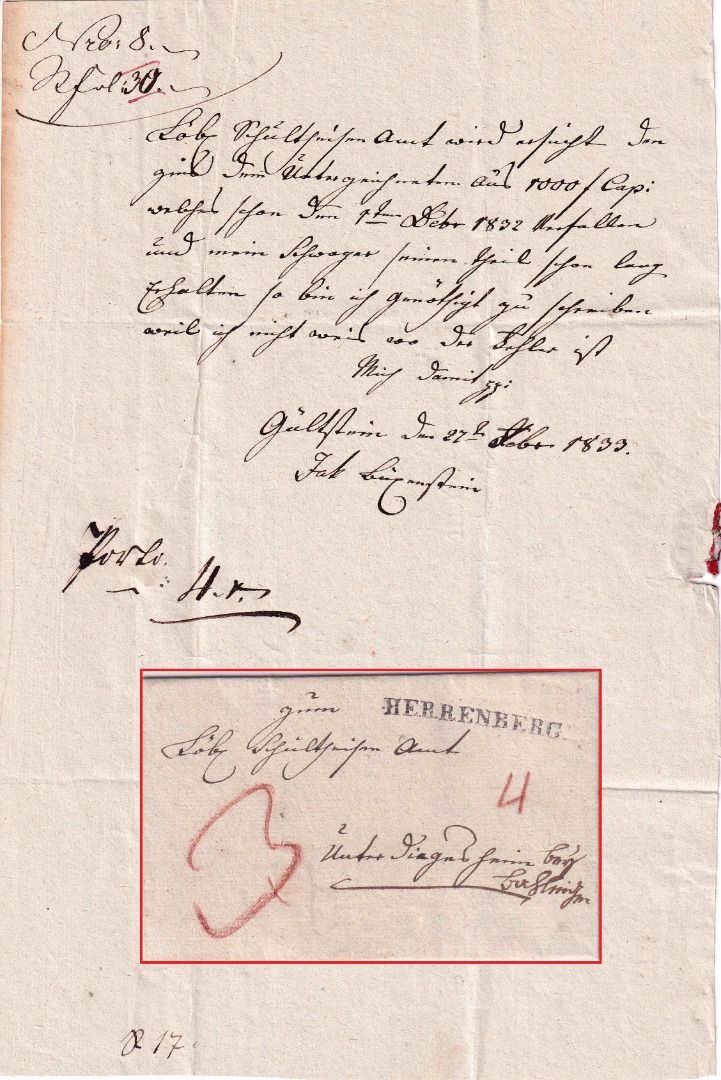 Nro: 8.
Rfol: 30.
Löbl Schultheisen Amt wird ersucht den
zins dem Unterzeichneten aus 1000 f Cap:
welches schon den 1ten Febr 1832 Verfallen
und mein Schwager seinen theil schon lang
Erhalten so bin ich genöthigt zu schreiben
weil ich nicht weis wo der Fehler ist
Mich damit
Gültstein den 27t Febr 1833.
Jak
Porto.
4 x.
zum
HERRENBERG
Löbl Schultheisen Amt
4
3
Unter Diegesheim bey
Bahlingen
R 17